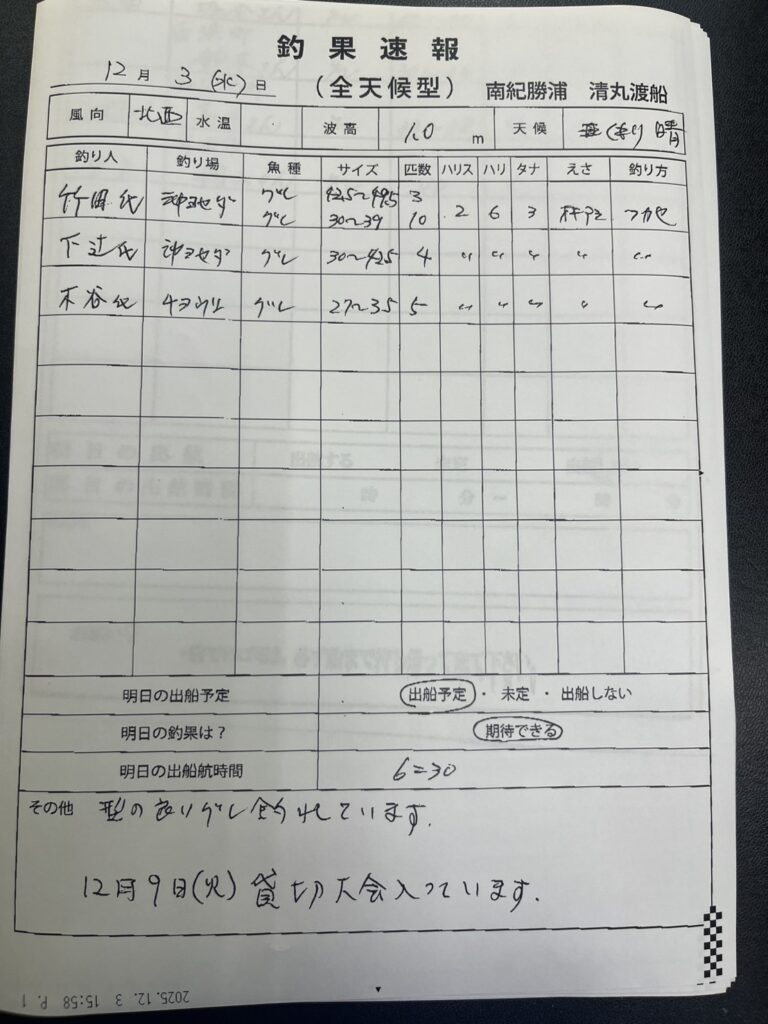 釣果速報
12月 3 (水)日
(全天候型) 南紀勝浦 清丸渡船
風向 北西 水温 波高 1.0 m 天候 晴
釣り人 釣り場 魚種 サイズ 匹数 ハリス ハリ タナ えさ 釣り方
竹田氏 沖ヨセダ グレ 42.5〜49.5 3
グレ 30〜39 10 2 6 3 オキアミ フカセ
下辻氏 沖ヨセダ グレ 30〜42.5 4 〃 〃 〃 〃 〃
木谷氏 グレ 27〜35 5 〃 〃 〃 〃 〃
明日の出船予定 出船予定 ・ 未定 ・ 出船しない
明日の釣果は? 期待できる
明日の出船航時間 6=30
その他 型の良いグレ釣れています.
12月9日(火) 貸切大会入っています.
2025.12. 3 15:58 P. 1